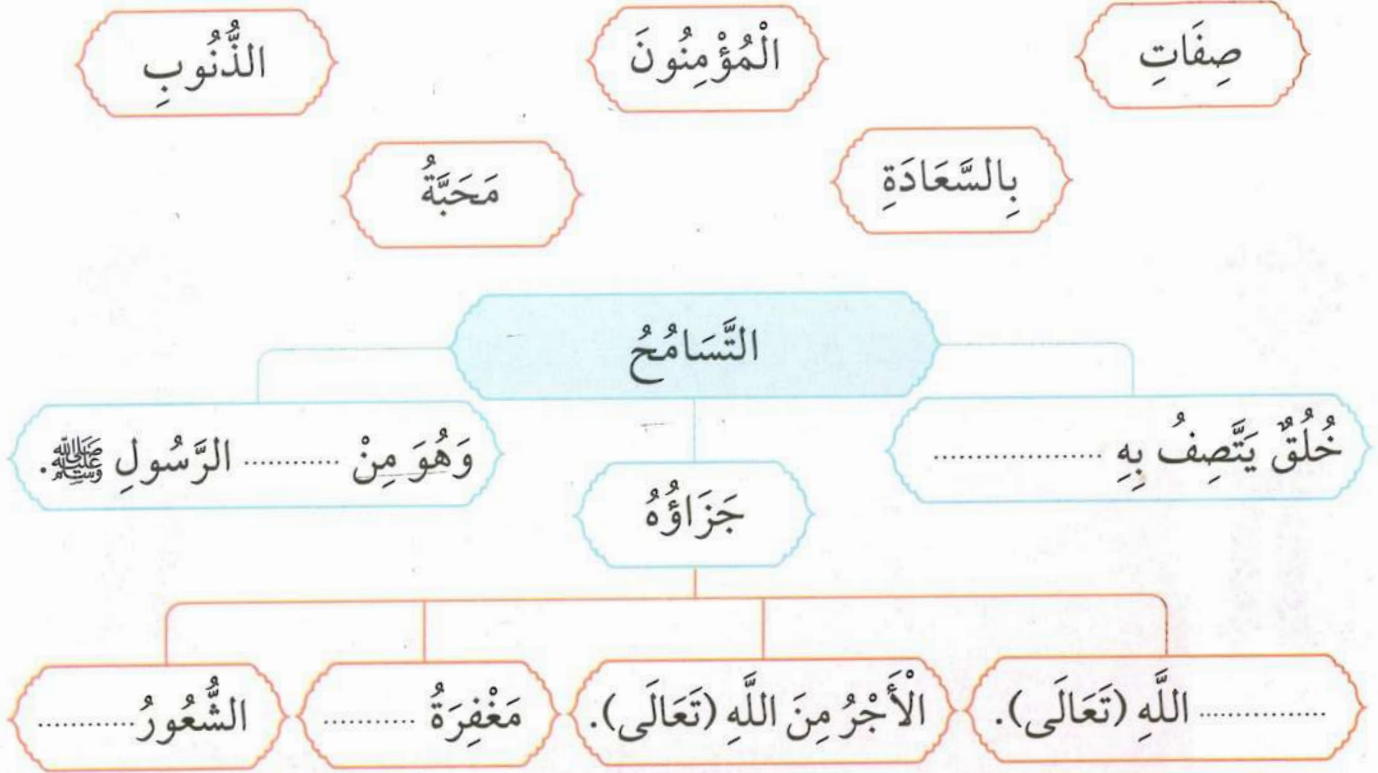 صِفَاتِ
الْمُؤْمِنُونَ
الذُّنُوبِ
بِالسَّعَادَةِ
مَحَبَّةُ
التَّسَامُحُ
خُلُقٌ يَتَّصِفُ بِهِ ..................
وَهُوَ مِنْ .......... الرَّسُولِ ﷺ.
جَزَاؤُهُ
.............. اللَّهِ (تَعَالَى).
الْأَجْرُ مِنَ اللَّهِ (تَعَالَى).
مَغْفِرَةُ ..........
الشُّعُورُ .............